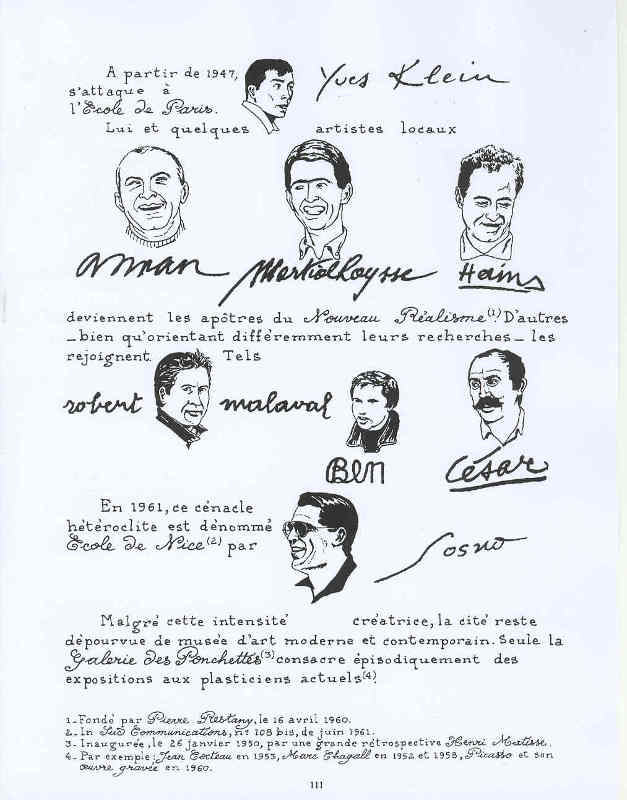 A partir de 1947, Yves Klein
s'attaque à
l'Ecole de Paris.
Lui et quelques artistes locaux
Arman Martial Raysse Hains
deviennent les apôtres du Nouveau Réalisme(1). D'autres
_ bien qu'orientant différemment leurs recherches _ les
rejoignent. Tels
robert malaval
Ben César
En 1961, ce cénacle
hétéroclite est dénommé
Ecole de Nice(2) par Sosno
Malgré cette intensité créatrice, la cité reste
dépourvue de musée d'art moderne et contemporain. Seule la
Galerie des Ponchettes(3) consacre épisodiquement des
expositions aux plasticiens actuels(4).
1_ Fondé par Pierre Restany, le 16 avril 1960.
2_ In Sud Communications, n° 108 bis, de juin 1961.
3_ Inaugurée, le 26 janvier 1950, par une grande rétrospective Henri Matisse.
4_ Par exemple: Jean Cocteau en 1953, Marc Chagall en 1952 et 1958, Picasso et son
œuvre gravée en 1960.
111